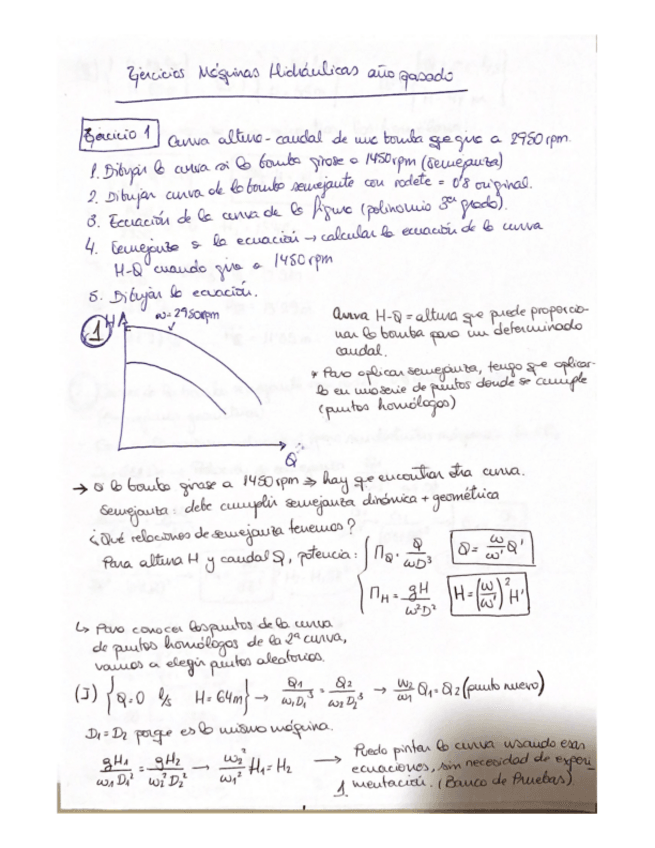 Ejercicios Máquinas Hidráulicas año pasado
Ejercicio 1 Curva altura-caudal de una bomba que gira a 2950 rpm.
1. Dibujar la curva si la bomba girase a 1450 rpm (semejanza)
2. Dibujar curva de la bomba semejante con rodete = 0'8 original.
3. Ecuación de la curva de la figura (polinomio 3er grado).
4. Semejanza a la ecuación → calcular la ecuación de la curva
H-Q cuando gira a 1450 rpm
5. Dibujar la ecuación.
1 H ω=2950rpm
Q
Curva H-Q = altura que puede proporcio-
nar la bomba para un determinado
caudal.
* Para aplicar semejanza, tengo que aplicar-
la en una serie de puntos donde se cumple
(puntos homólogos)
→ si la bomba girase a 1450 rpm ⇒ hay que encontrar otra curva.
Semejanza: debe cumplir semejanza dinámica + geométrica
¿Qué relaciones de semejanza tenemos?
Para altura H y caudal Q, potencia: { Π_Q = Q/ωD³ Q = ω/ω' Q'
Π_H = gH/ω²D² H = (ω/ω')² H'
↳ Para conocer los puntos de la curva
de puntos homólogos de la 2ª curva,
vamos a elegir puntos aleatorios.
(I) { Q=0 l/s H=64m} → Q₁/ω₁D₁³ = Q₂/ω₂D₂³ → ω₂/ω₁ Q₁ = Q₂ (punto nuevo)
D₁=D₂ porque es la misma máquina.
gH₁/ω₁D₁² = gH₂/ω₂²D₂² → ω₂²/ω₁² H₁ = H₂ → Puedo pintar la curva usando esas
ecuaciones, sin necesidad de experi-
mentación. (Banco de Pruebas).
1.